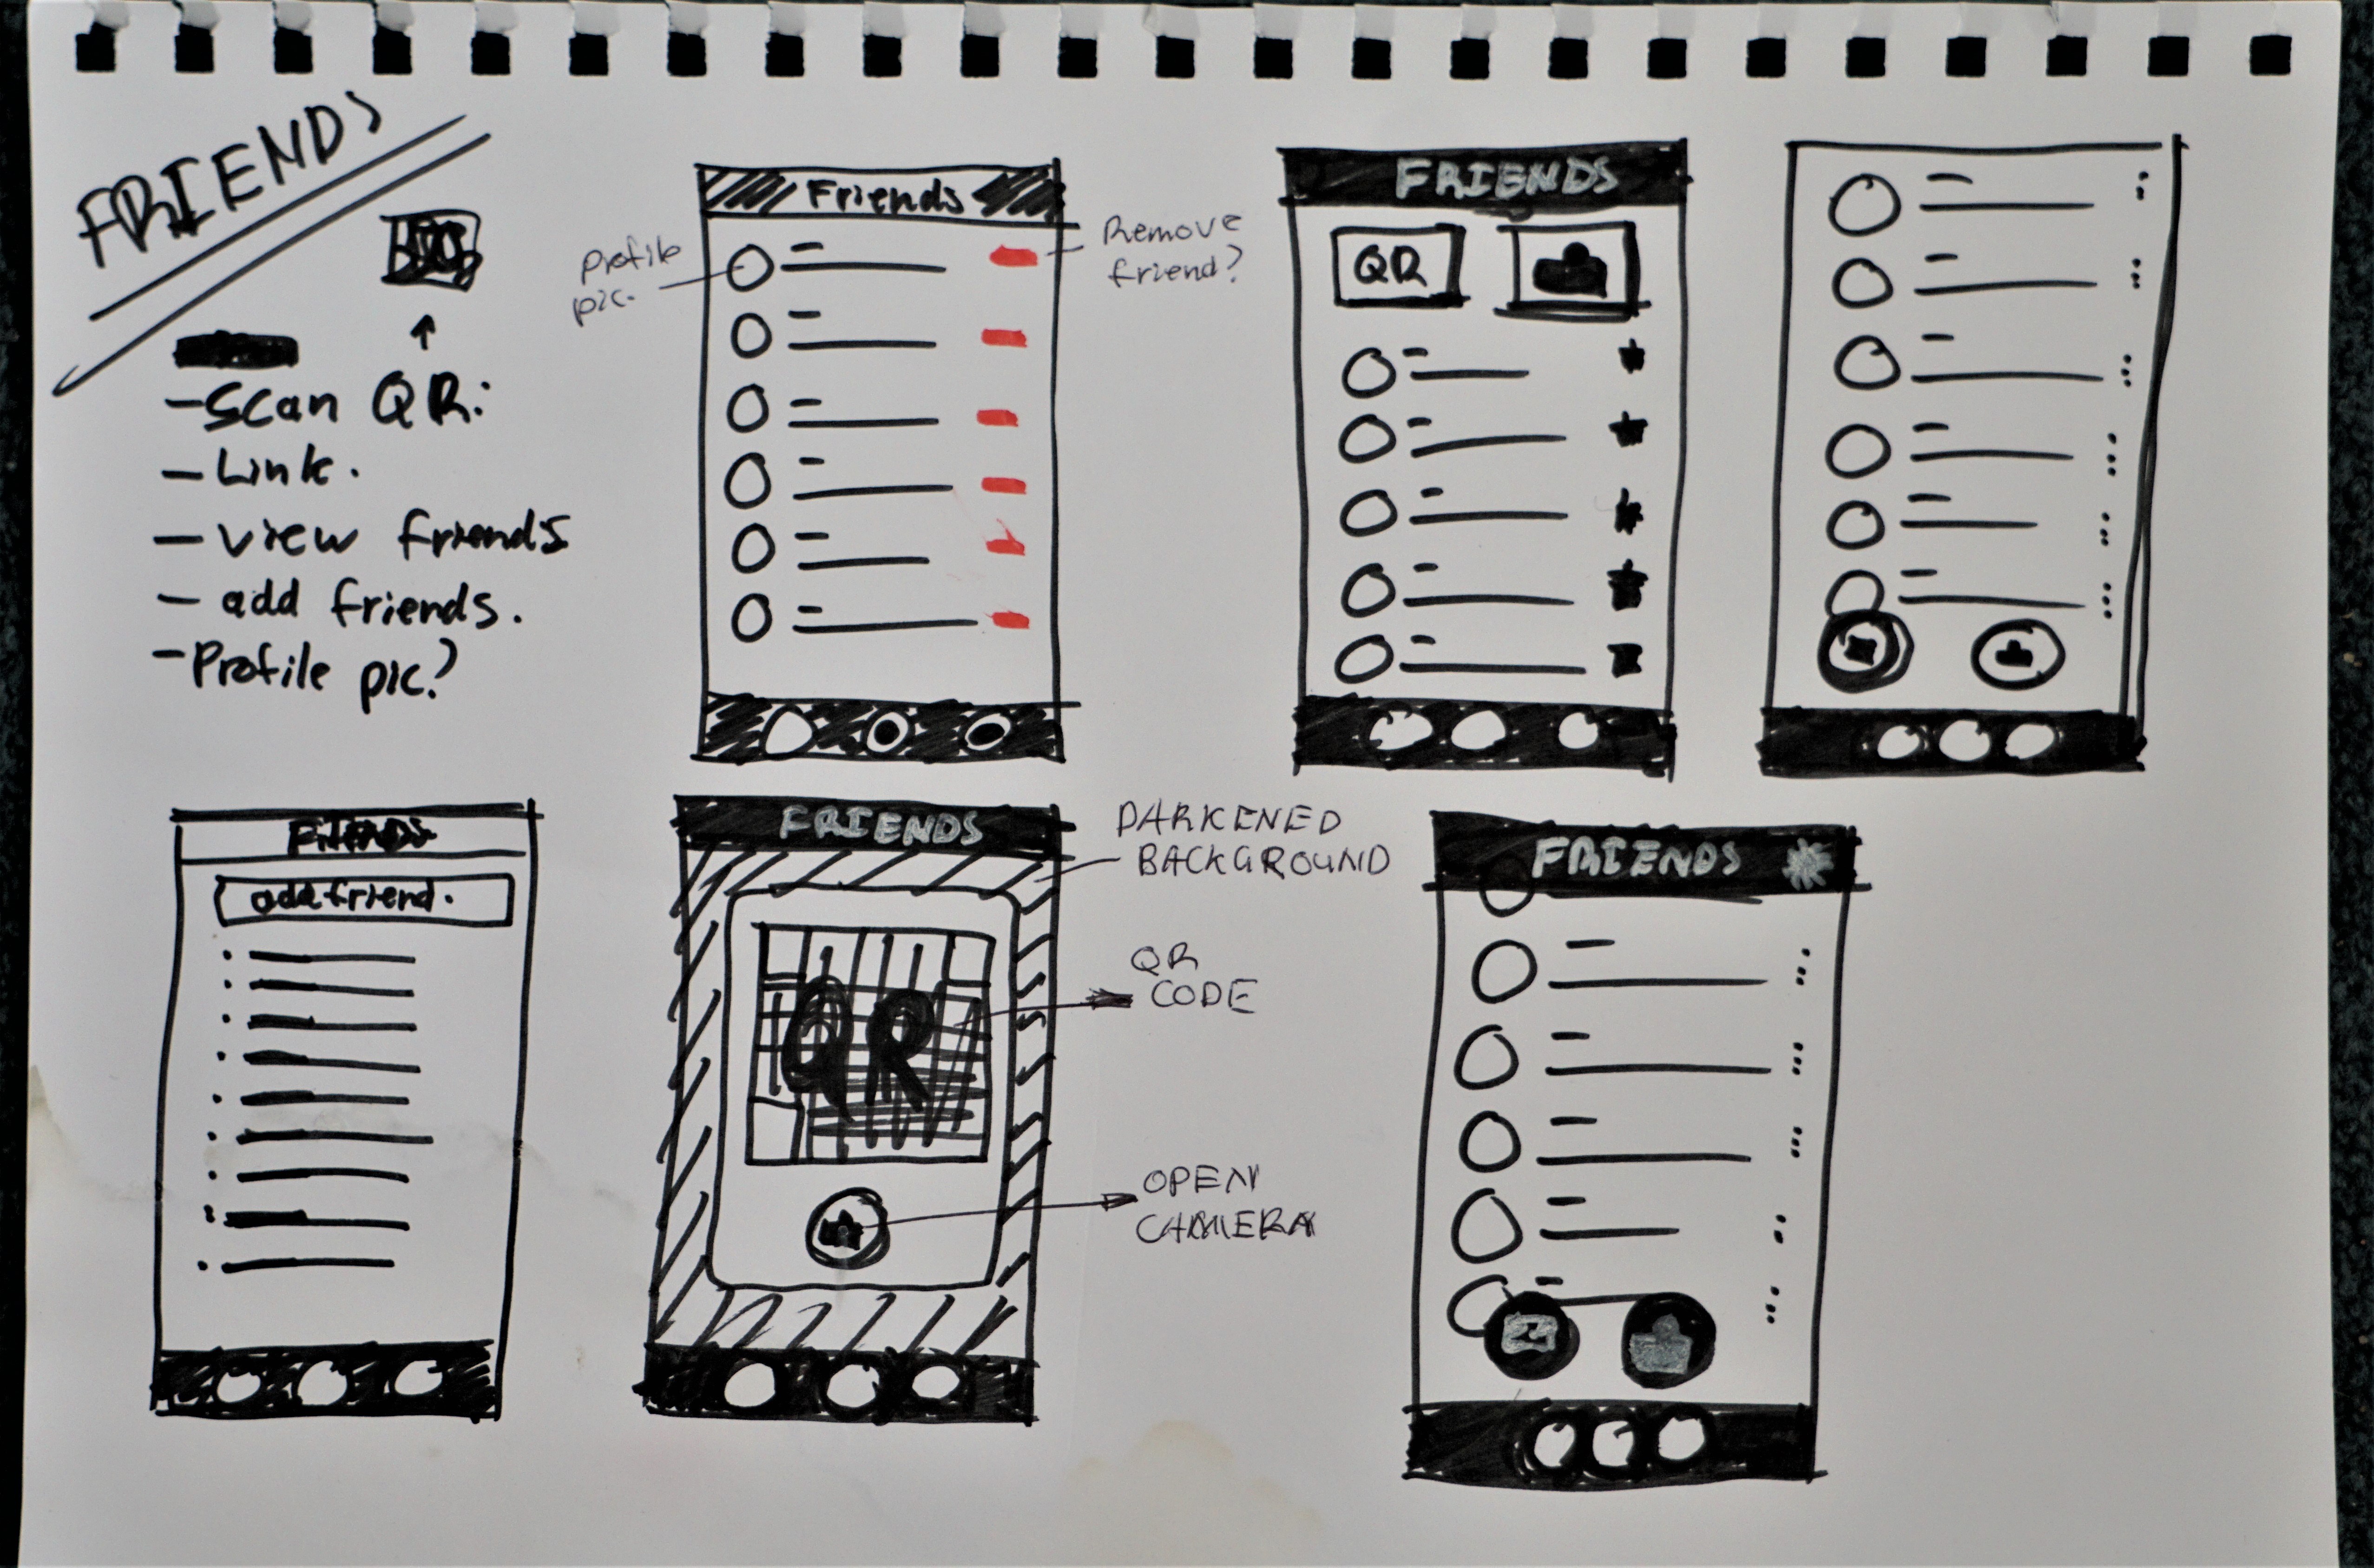 FRIENDS
- Scan QR:
- Link.
- view friends
- add friends.
- Profile pic?
Friends
Profile
pic.
Remove
friend?
FRIENDS
QR
Friends
add friend.
FRIENDS
QR
DARKENED
BACKGROUND
QR
CODE
OPEN
CAMERA
FRIENDS